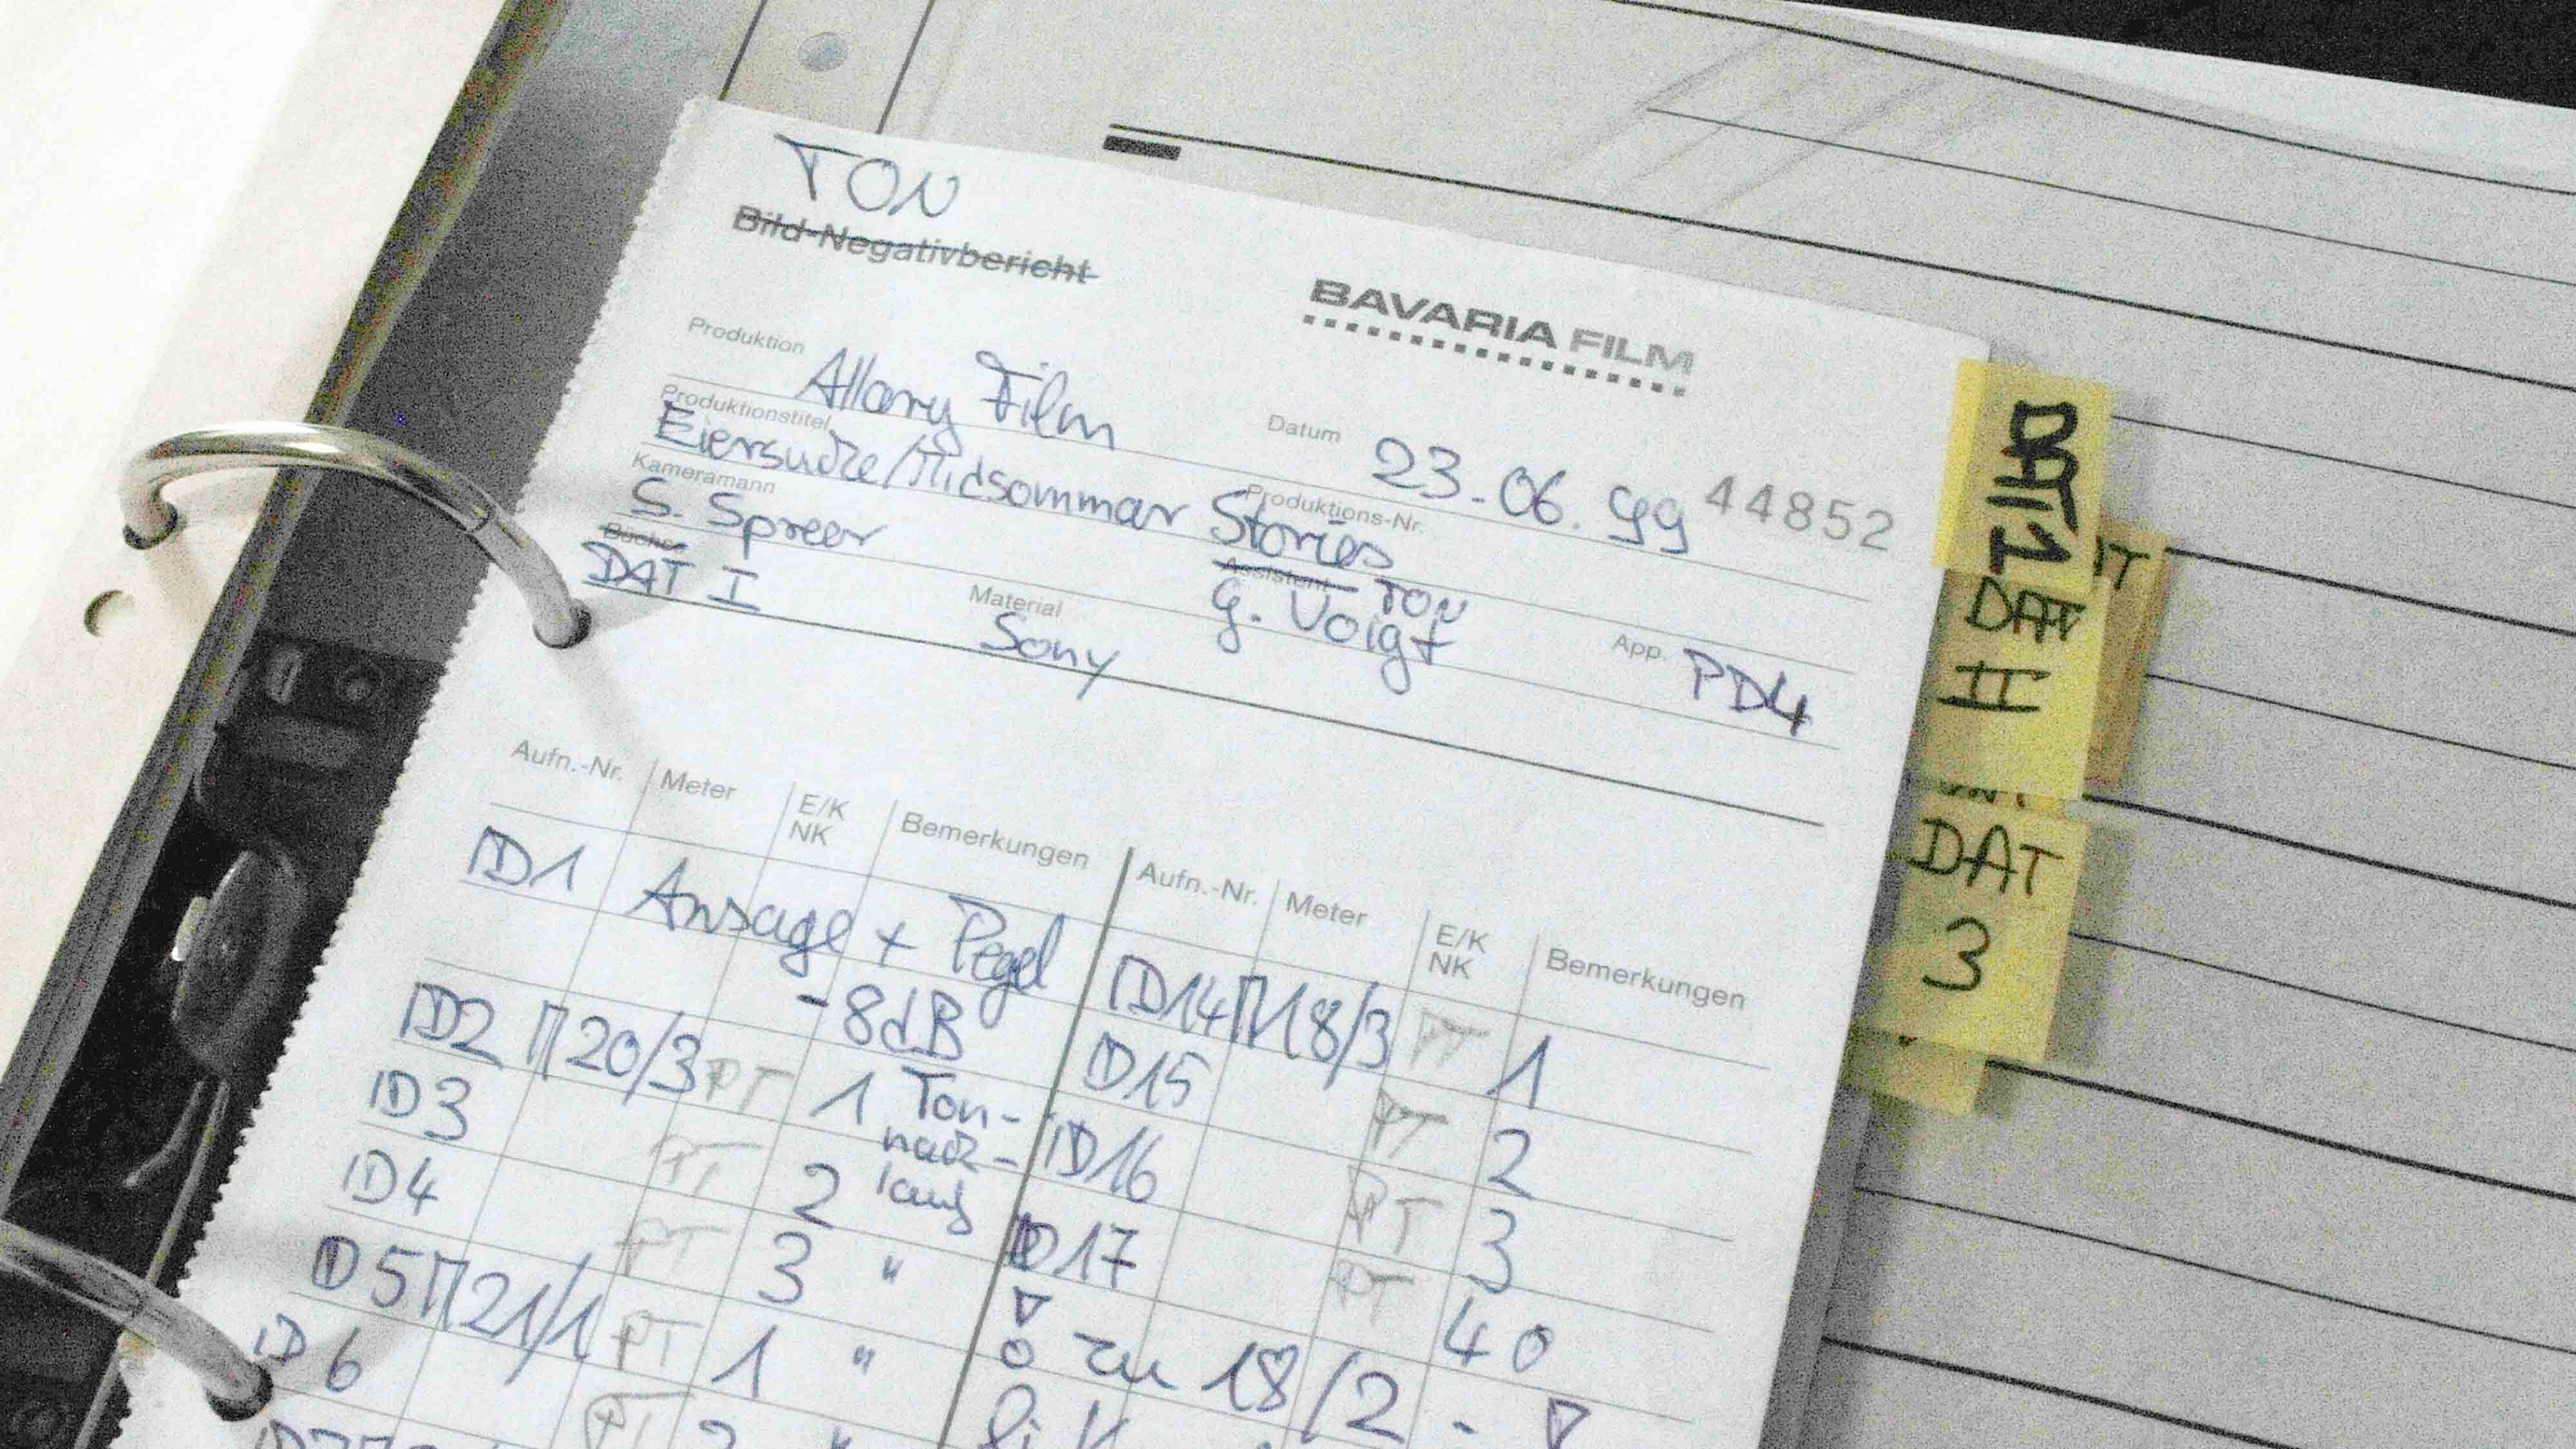 TON
Bild-Negativbericht
BAVARIA FILM
Produktion Allary Film
Datum 23.06.99 44852
Produktionstitel
Eiersuche/Midsommar Stories
Produktions-Nr.
Kameramann
S. Spreer
Assistent TON
G. Voigt
Büchse
DAT I
Material
Sony
App. PD4
Aufn.-Nr. Meter E/K NK Bemerkungen
ID1 Ansage + Pegel
-8dB
ID2 20/3 PT 1 Ton-
nach-
lauf
ID3 PT 2
ID4 PT 3 "
ID5 21/1 PT 1 "
ID6 PT 2 "
Aufn.-Nr. Meter E/K NK Bemerkungen
ID14 18/3 PT 1
ID15 PT 2
ID16 PT 3
ID17 PT 40
zu 18/2 -
DAT 1
DAT
II
DAT
3